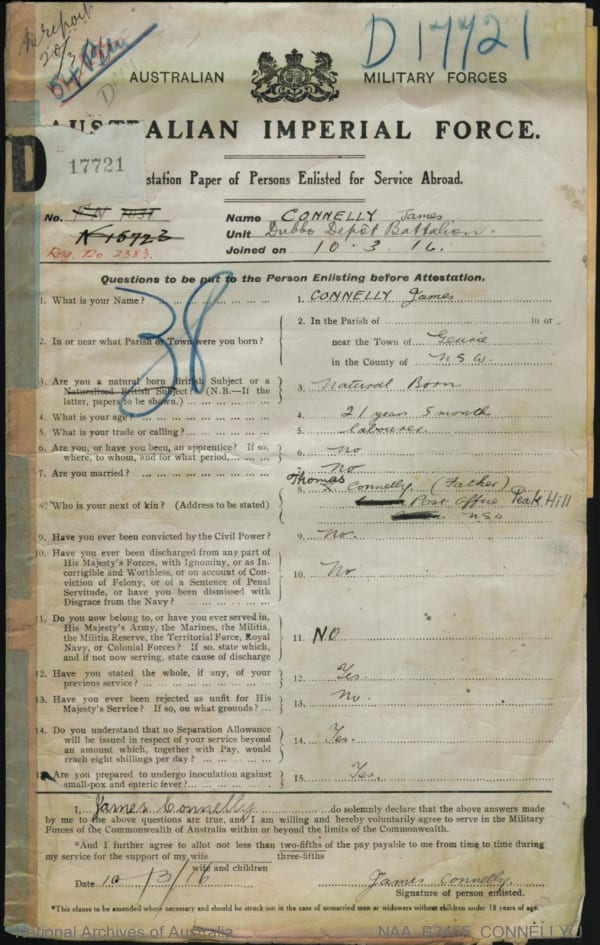 D17721
AUSTRALIAN MILITARY FORCES
AUSTRALIAN IMPERIAL FORCE.
D
17721
station Paper of Persons Enlisted for Service Abroad.
No.
Name CONNELLY James
N 16723
Unit Dubbo Depôt Battalion.
Reg. No 2383.
Joined on 10.3.16.
Questions to be put to the Person Enlisting before Attestation.
38
1. What is your Name? 1. CONNELLY James
2. In or near what Parish or Town were you born? 2. In the Parish of in or
near the Town of Geurie
in the County of N.S.W.
3. Are you a natural born British Subject or a
Naturalized British Subject? (N.B.—If the
latter, papers to be shown.) 3. Natural Born
4. What is your age? 4. 21 years 5 month
5. What is your trade or calling? 5. labourer
6. Are you, or have you been, an apprentice? If so,
where, to whom, and for what period, 6. no
7. Are you married? 7. No
8. Who is your next of kin? (Address to be stated) 8. Thomas Connelly (Father)
Post Office Peak Hill
NSW
9. Have you ever been convicted by the Civil Power? 9. No.
10. Have you ever been discharged from any part of
His Majesty's Forces, with Ignominy, or as In-
corrigible and Worthless, or on account of Con-
viction of Felony, or of a Sentence of Penal
Servitude, or have you been dismissed with
Disgrace from the Navy? 10. No
11. Do you now belong to, or have you ever served in,
His Majesty's Army, the Marines, the Militia,
the Militia Reserve, the Territorial Force, Royal
Navy, or Colonial Forces? If so, state which,
and if not now serving, state cause of discharge 11. NO
12. Have you stated the whole, if any, of your
previous service? 12. Yes.
13. Have you ever been rejected as unfit for His
Majesty's Service? If so, on what grounds? 13. No.
14. Do you understand that no Separation Allowance
will be issued in respect of your service beyond
an amount which, together with Pay, would
reach eight shillings per day? 14. Yes.
15. Are you prepared to undergo inoculation against
small-pox and enteric fever? 15. Yes.
I, James Connelly do solemnly declare that the above answers made
by me to the above questions are true, and I am willing and hereby voluntarily agree to serve in the Military
Forces of the Commonwealth of Australia within or beyond the limits of the Commonwealth.
*And I further agree to allot not less than two-fifths of the pay payable to me from time to time during
three-fifths
my service for the support of my wife
wife and children
Date 10/3/16 James Connelly
Signature of person enlisted.
*This clause to be amended where necessary and should be struck out in the case of unmarried men or widowers without children under 18 years of age.
National Archives of Australia NAA: B2455, CONNELLY J